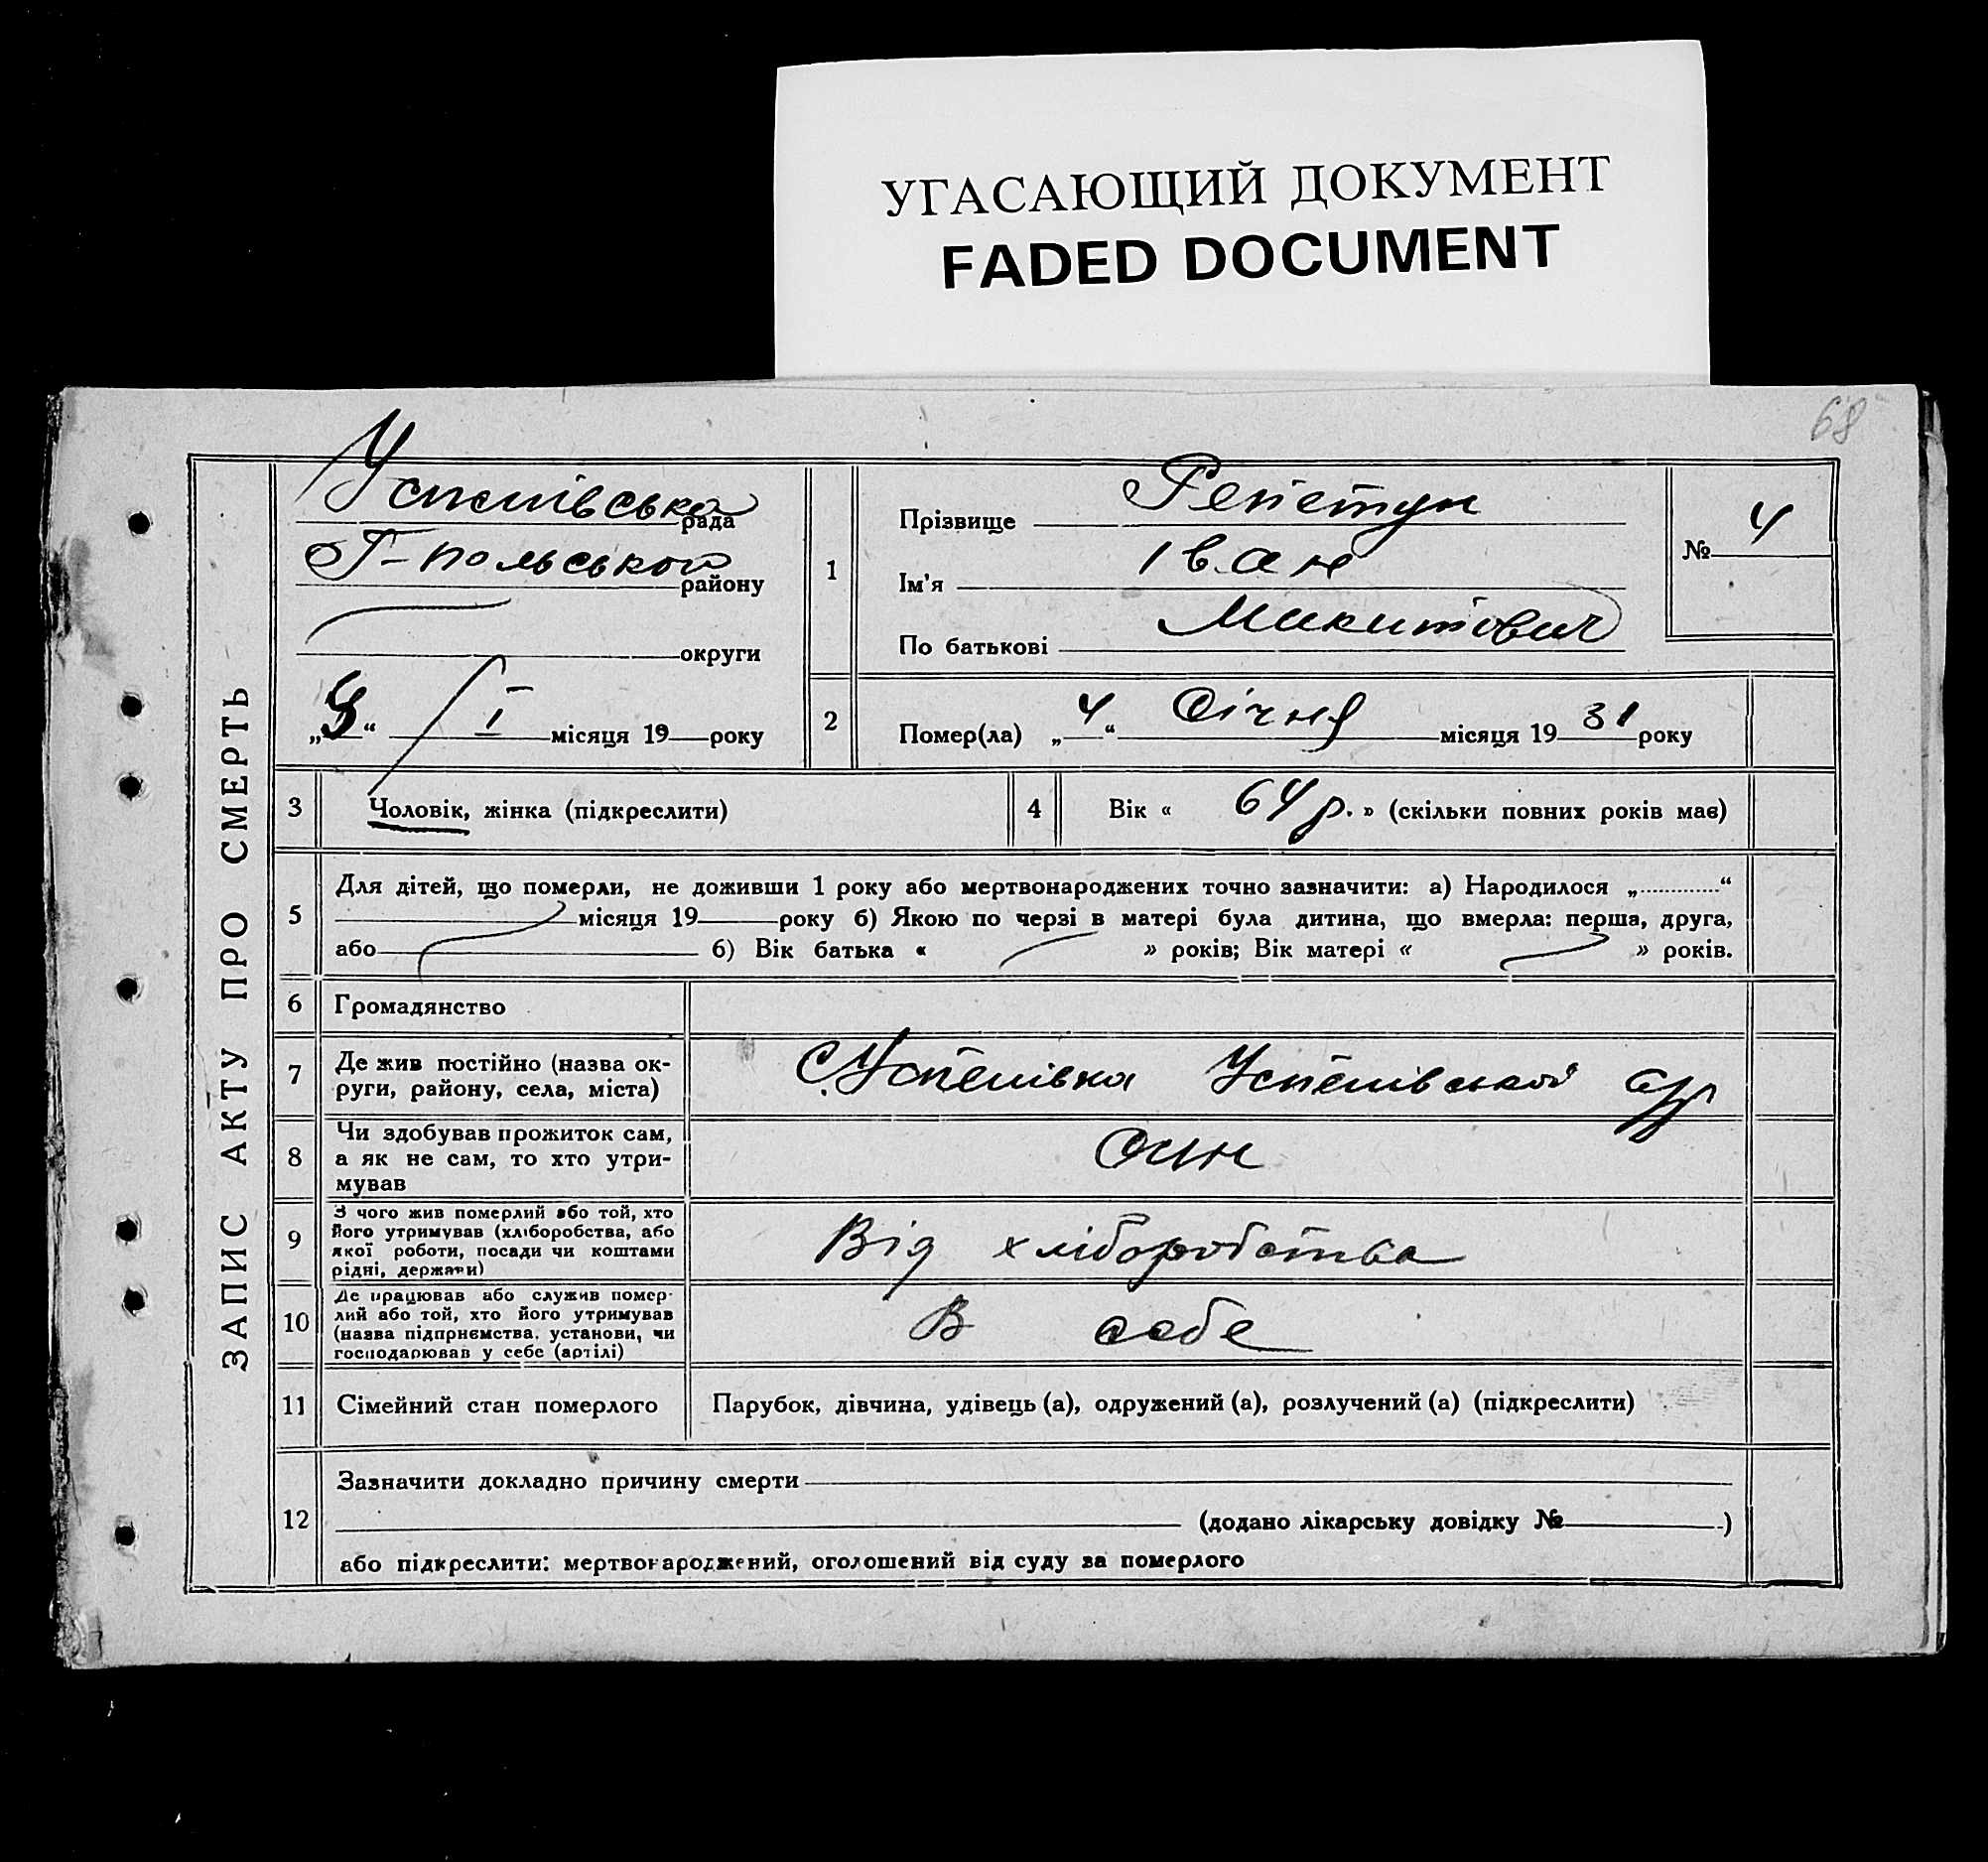 УГАСАЮЩИЙ ДОКУМЕНТ
FADED DOCUMENT
68
ЗАПИС АКТУ ПРО СМЕРТЬ
Успенівська рада
Г-Польської району
округи
„ “ I місяця 19 року
1
Прізвище Репетун
Ім'я Іван
По батькові Микитович
№ 4
2
Помер(ла) „4“ Січня місяця 1931 року
3
Чоловік, жінка (підкреслити)
4
Вік « 64 р. » (скільки повних років має)
5
Для дітей, що померли, не доживши 1 року або мертвонароджених точно зазначити: а) Народилося „ “
місяця 19 року б) Якою по черзі в матері була дитина, що вмерла: перша, друга,
або б) Вік батька « » років; Вік матері « » років.
6
Громадянство
7
Де жив постійно (назва ок-
руги, району, села, міста)
С. Успенівка Успенівської с/р
8
Чи здобував прожиток сам,
а як не сам, то хто утри-
мував
син
9
З чого жив померлий або той, хто
його утримував (хліборобства, або
якої роботи, посади чи коштами
рідні, держави)
Від хліборобства
10
Де працював або служив помер-
лий або той, хто його утримував
(назва підприємства, установи, чи
господарював у себе (артілі)
В себе
11
Сімейний стан померлого
Парубок, дівчина, удівець (а), одружений (а), розлучений (а) (підкреслити)
12
Зазначити докладно причину смерти
(додано лікарську довідку № )
або підкреслити: мертвонароджений, оголошений від суду за померлого